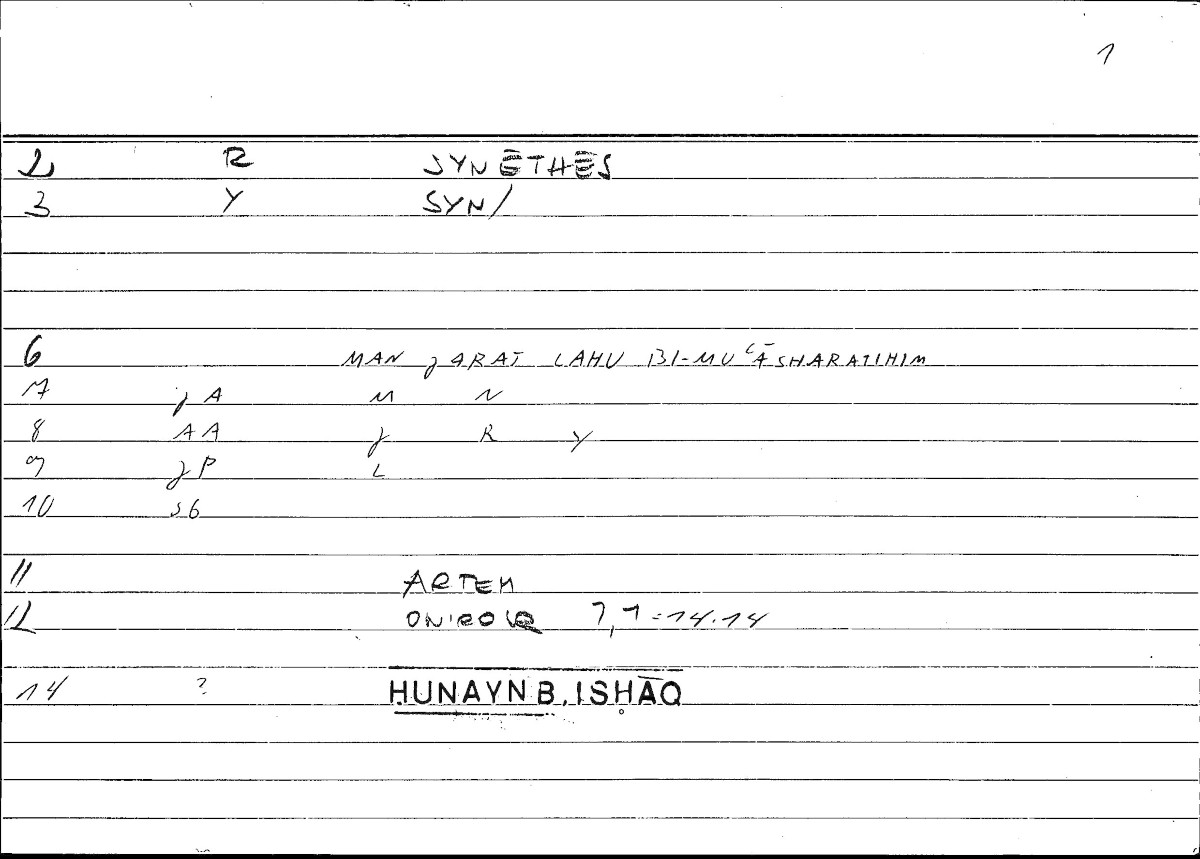 1
2 R SYNĒTHĒS
3 Y SYN/
6 MAN JARAT LAHU BI-MUʿĀSHARATIHIM
7 JA M N
8 AA J R Y
9 JP L
10 S6
11 ARTEM
12 ONIROCR 1,1=14.14
14 ? ḤUNAYN B. ISḤĀQ